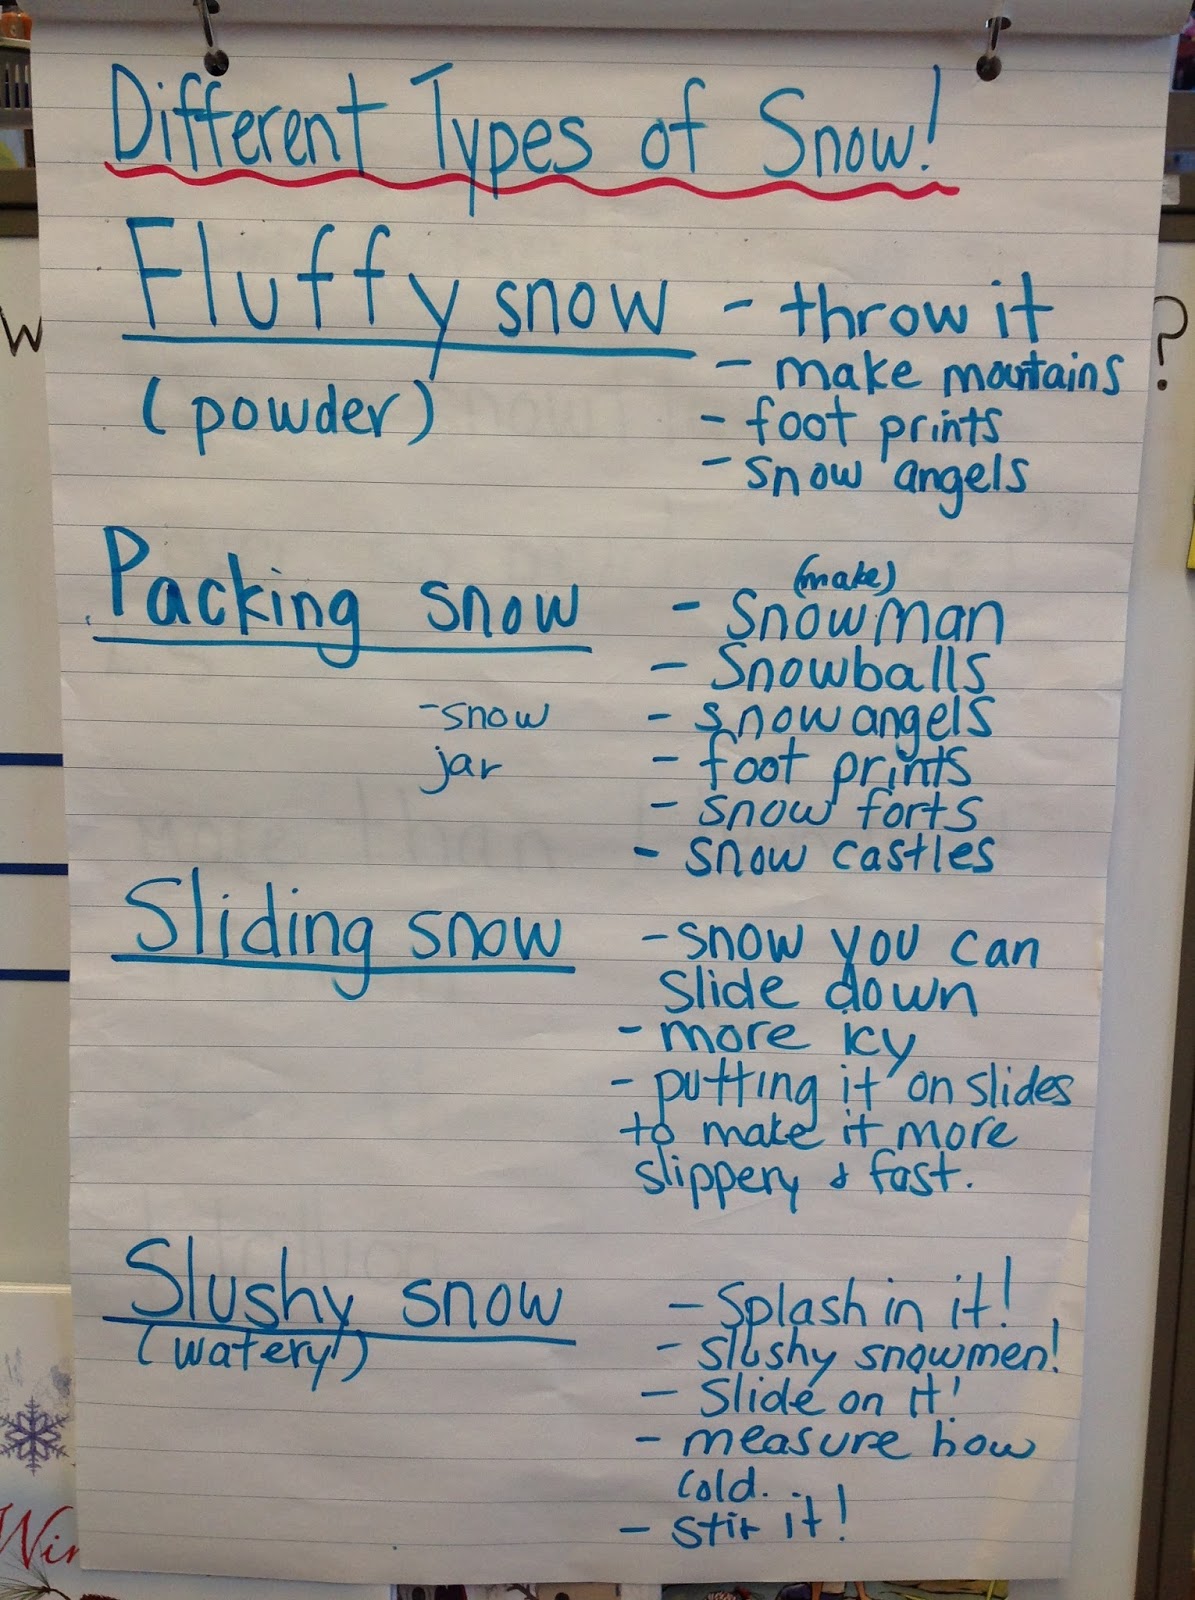 Different Types of Snow!
Fluffy snow
(powder)
- throw it
- make mountains
- foot prints
- snow angels
Packing snow
- snow
jar
(make)
- Snowman
- Snowballs
- snow angels
- foot prints
- snow forts
- snow castles
Sliding snow
- snow you can
slide down
- more icy
- putting it on slides
to make it more
slippery & fast.
Slushy snow
(watery)
- Splash in it!
- slushy snowmen!
- Slide on it!
- measure how
cold.
- stir it!
W
?
Win